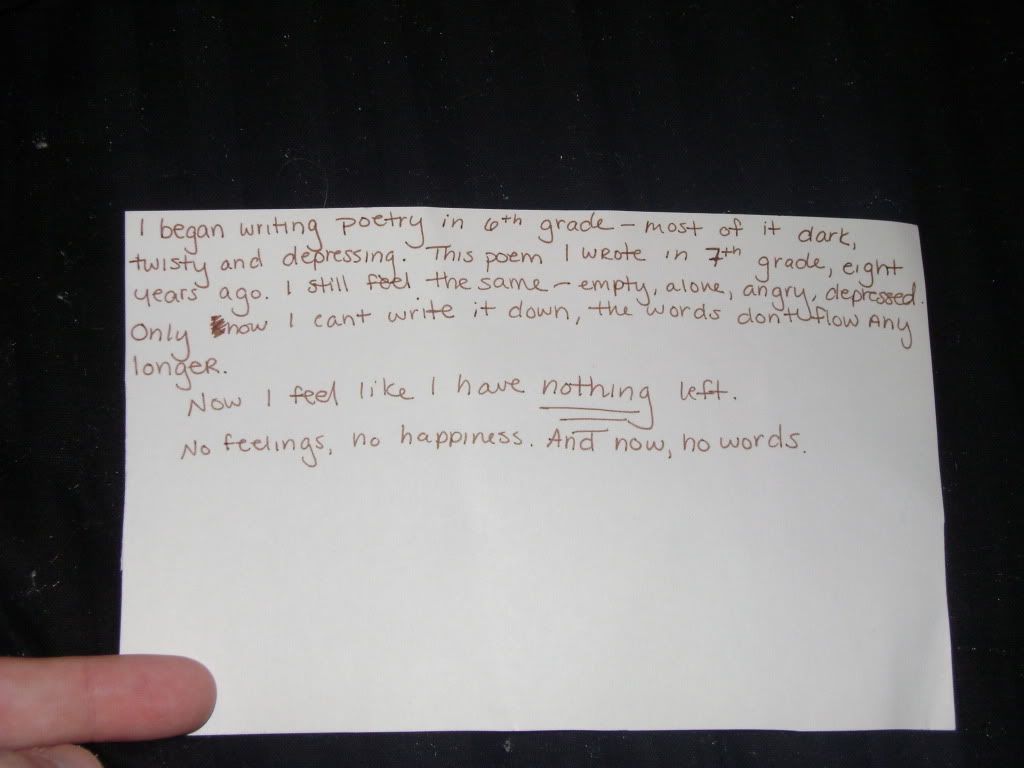 I began writing poetry in 6th grade - most of it dark,
twisty and depressing. This poem I wrote in 7th grade, eight
years ago. I still feel the same - empty, alone, angry, depressed.
Only now I cant write it down, the words don't flow any
longer.
Now I feel like I have nothing left.
No feelings, no happiness. And now, no words.